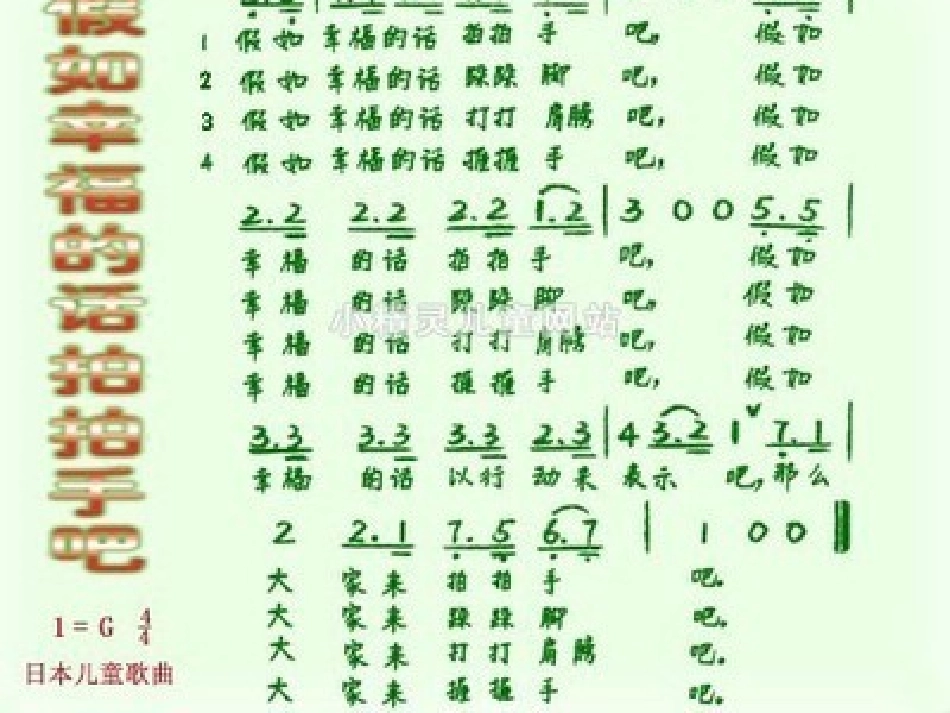 假如幸福的话拍拍手吧
1 假如 幸福的话 拍拍 手 吧, 假如
2 假如 幸福的话 跺跺 脚 吧, 假如
3 假如 幸福的话 打打 肩膀 吧, 假如
4 假如 幸福的话 握握 手 吧, 假如
2.2 2.2 2.2 1.2 | 3 0 0 5.5 |
幸福 的话 拍拍手 吧, 假如
幸福 的话 跺跺脚 吧, 假如
幸福 的话 打打肩膀 吧, 假如
幸福 的话 握握手 吧, 假如
小精灵儿童网站
3.3 3.3 3.3 2.3 | 4 3.2 1 7.1 |
幸福 的话 以行 动来 表示 吧, 那么
2 2.1 7.5 6.7 | 1 0 0
大 家来 拍拍手 吧.
大 家来 跺跺脚 吧.
大 家来 打打肩膀 吧.
大 家来 握握手 吧.
1=G 4/4
日本儿童歌曲